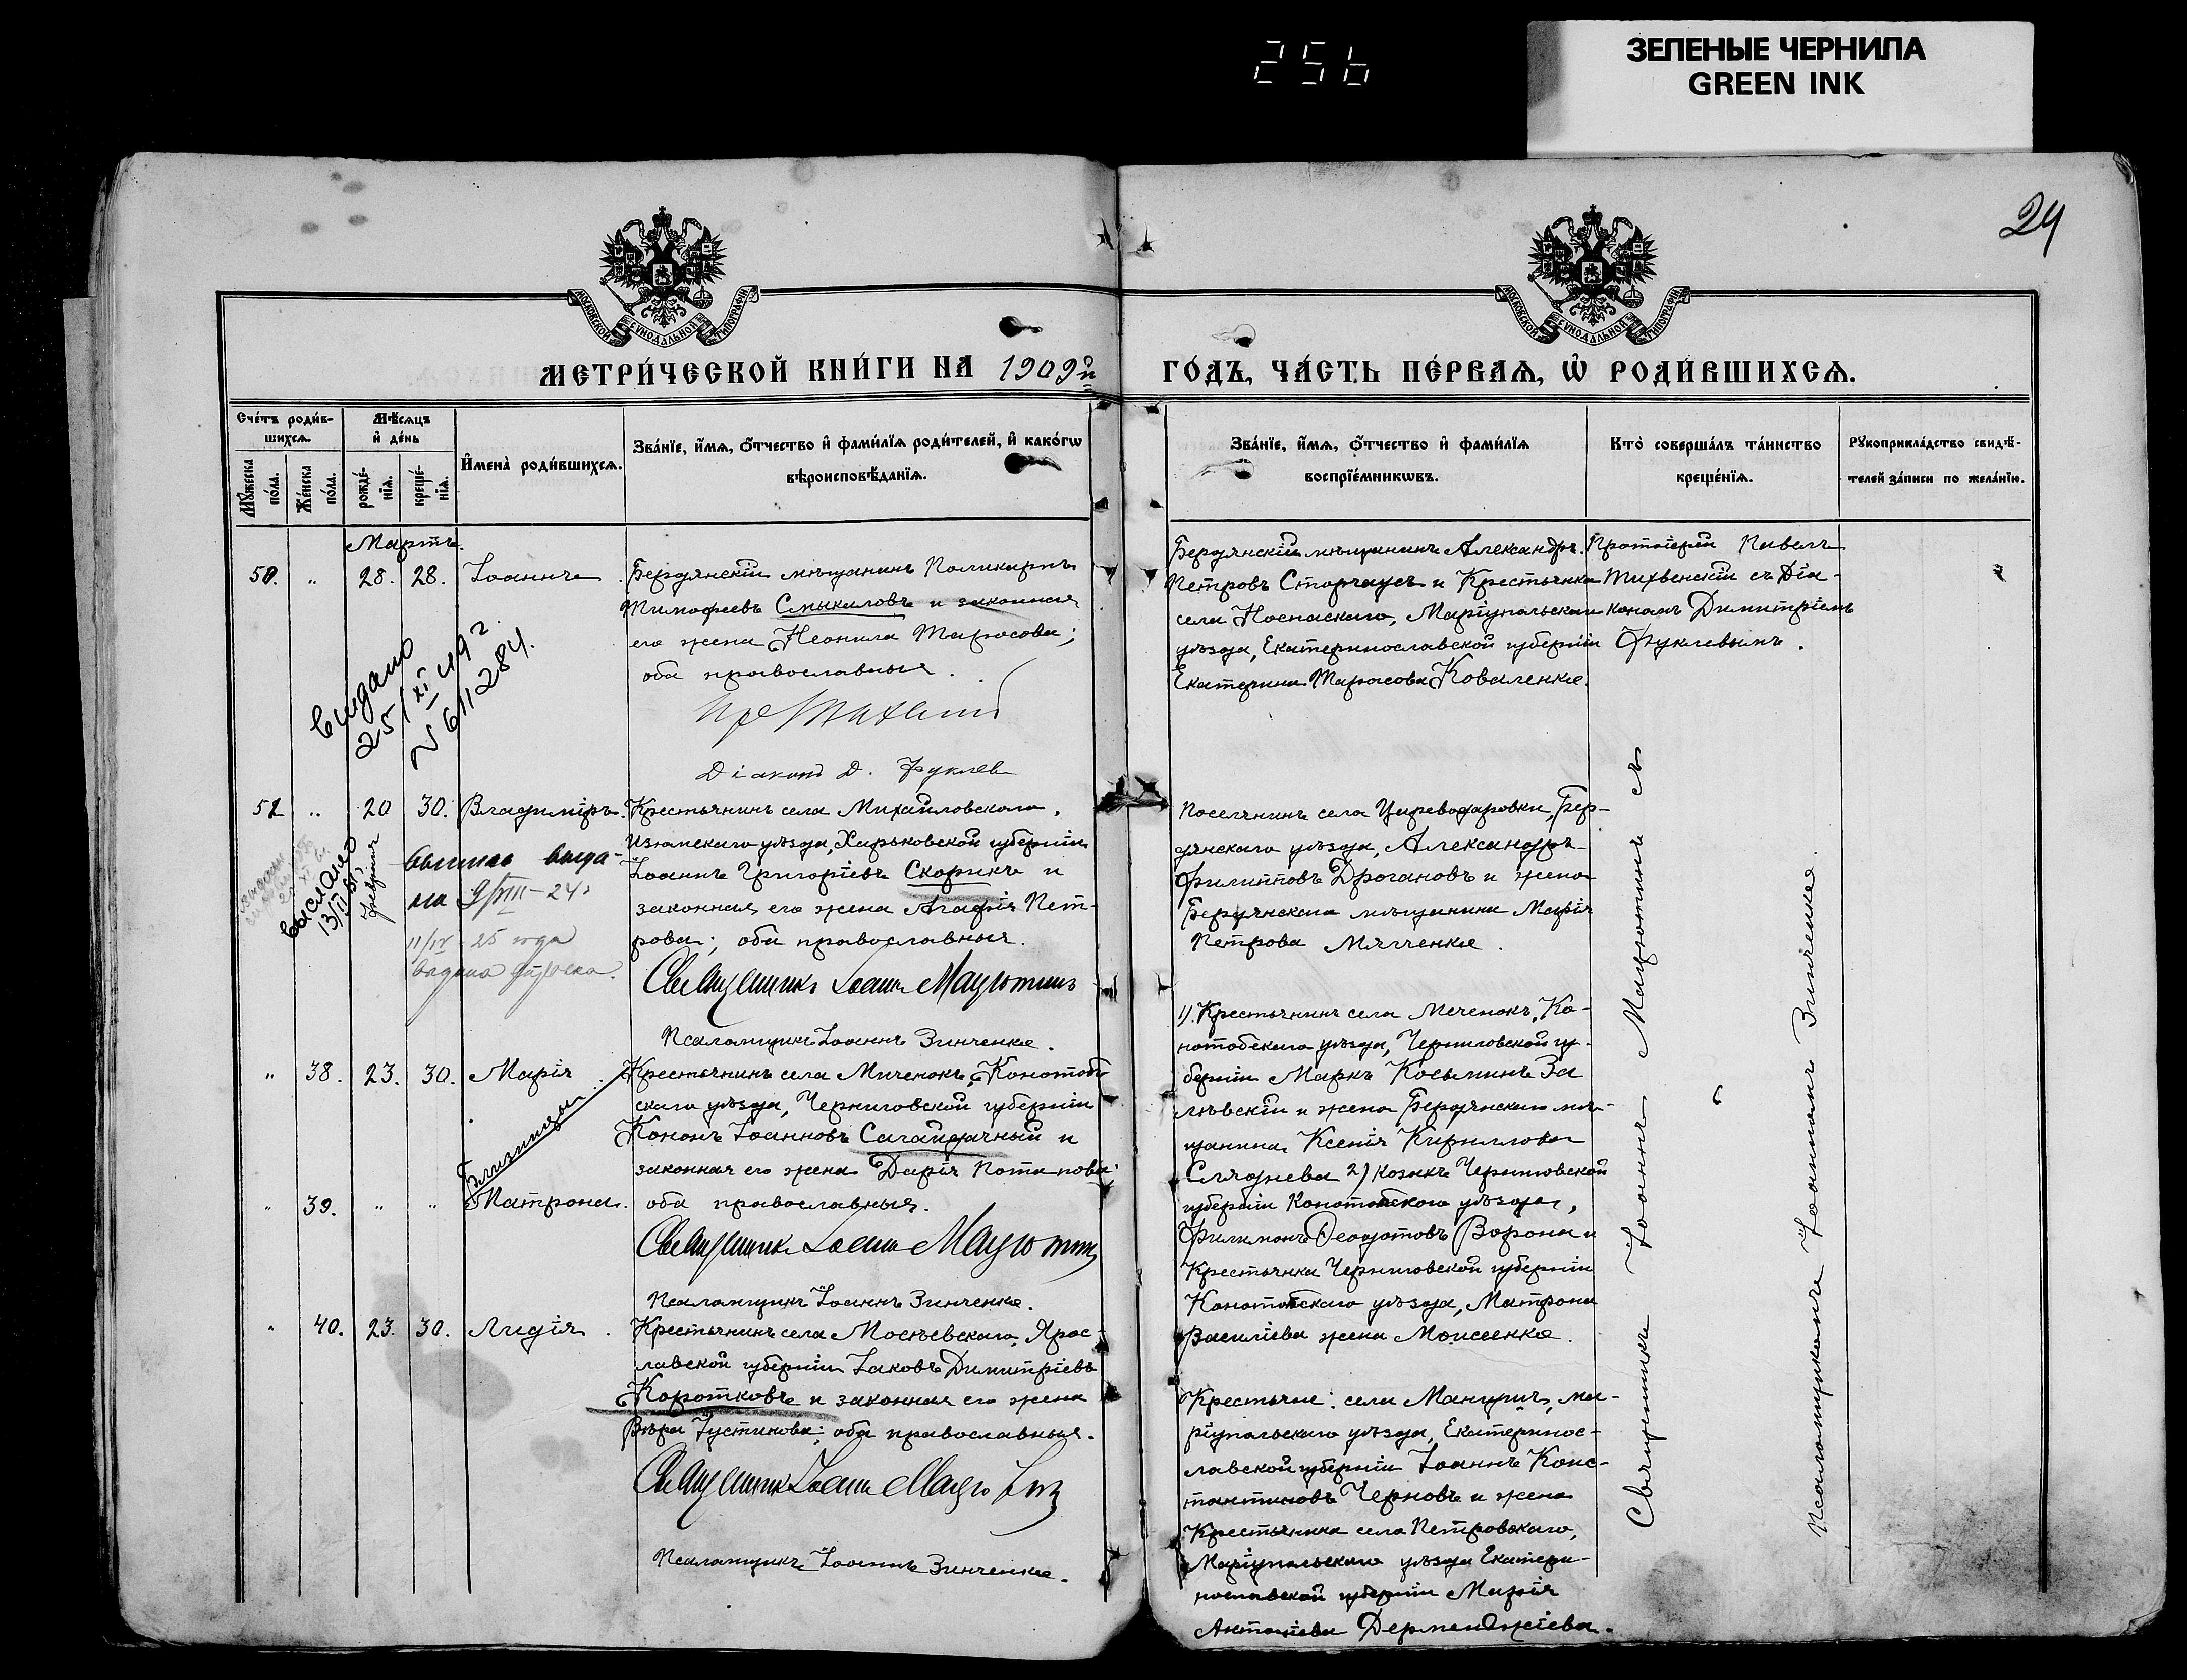 256
ЗЕЛЕНЫЕ ЧЕРНИЛА
GREEN INK
24
МОСКОВСКОЙ СѴНОДАЛЬНОЙ ТИПОГРАФІИ
МОСКОВСКОЙ СѴНОДАЛЬНОЙ ТИПОГРАФІИ
МЕТРИ́ЧЕСКОЙ КНИ́ГИ НА 1909й
ГО́ДЪ, ЧА́СТЬ ПЕ́РВАѦ, Ѡ҆ РОДИ́ВШИХСѦ.
Сче́тъ роди́в-
шихсѧ.
Мꙋ́жеска
по́ла.
Же́нска
по́ла.
Мѣ́сѧцъ
и҆ де́нь
рожде́-
нїѧ.
креще́-
нїѧ.
И҆мена̀ роди́вшихсѧ.
Зва́нїе, и҆́мѧ, ѻ҆́тчество и҆ фами́лїѧ роди́телей, и҆ како́гѡ
вѣроисповѣ́данїѧ.
Зва́нїе, и҆́мѧ, ѻ҆́тчество и҆ фами́лїѧ
воспрїе́мникѡвъ.
Кто̀ соверша́лъ та́инство
креще́нїѧ.
Рꙋкоприкла́дство свидѣ́-
телей за́писи по жела́нїю.
Мартъ.
50. " 28. 28. Іоаннъ
Бердянскій мѣщанинъ Поликарпъ
Тимофеевъ Смыкаловъ и законная
его жена Неонила Тарасова;
оба православныя.
Діаконъ Д. Фуклев
Бердянскій мѣщанинъ Александръ
Петровъ Сторчаусъ и Крестьянка
села Носпаскаго, Маріупольскаго
уѣзда, Екатеринославской губерніи
Екатерина Тарасова Коваленкова.
Протоіерей Павелъ
Тихвенскій съ Діа-
кономъ Димитріемъ
Фуклевымъ.
выдано
25/XI 49г.
№ 611284.
51 " 20 30. Владиміръ.
февраля
Крестьянинъ села Михайловскаго,
Изюмскаго уѣзда, Харьковской губерніи
Іоаннъ Григоріевъ Скорикъ и
законная его жена Агафія Пет-
рова; оба православныя.
Священникъ Іоаннъ Мацютинъ
Псаломщикъ Іоаннъ Зинченко.
выслано
выпись выда-
на 9/VIII-24г
11/IV 25 года
Поселянинъ села Цареводаровки, Бер-
дянскаго уѣзда, Александръ
Филипповъ Драгановъ и жена
Бердянскаго мѣщанина Марія
Петрова Мягченко.
" 38. 23. 30. Марія
Близнецы
Крестьянинъ села Миченокъ, Конотоб-
скаго уѣзда, Черниговской губерніи
Кононъ Іоанновъ Сагайдачный и
законная его жена Дарія Потапова;
" 39. " " Матрона.
оба православныя.
Священникъ Іоаннъ Мацютинъ
Псаломщикъ Іоаннъ Зинченко.
1). Крестьянинъ села Меченокъ, Ко-
нотобскаго уѣзда, Черниговской гу-
берніи Маркъ Косьминъ За
лѣвскій и жена Бердянскаго мѣ-
щанина Ксенія Кириллова
Сляднева 2) козакъ Черниговской
губерніи Конотобскаго уѣзда,
Филимонъ Ѳеодотовъ Ворона и
Крестьянка Черниговской губерніи
Конотобскаго уѣзда, Матрона
Василіева жена Моисеенко.
" 40. 23. 30. Лидія.
Крестьянинъ села Мосѣевскаго, Ярос-
лавской губерніи Іаковъ Димитріевъ
Коротковъ и законная его жена
Вѣра Іустинова; оба православныя.
Священникъ Іоаннъ Мацютинъ
Псаломщикъ Іоаннъ Зинченко.
Крестьяне: села Мангушъ, Ма-
ріупольскаго уѣзда, Екатеринос-
лавской губерніи Іоаннъ Конс-
тантиновъ Черновъ и жена
Крестьянина села Петровскаго,
Маріупольскаго уѣзда Екатери-
нославской губерніи Марія
Антоніева Дерменджіева.
Священникъ Іоаннъ Мацютинъ съ
Псаломщикомъ Іоанномъ Зинченко.